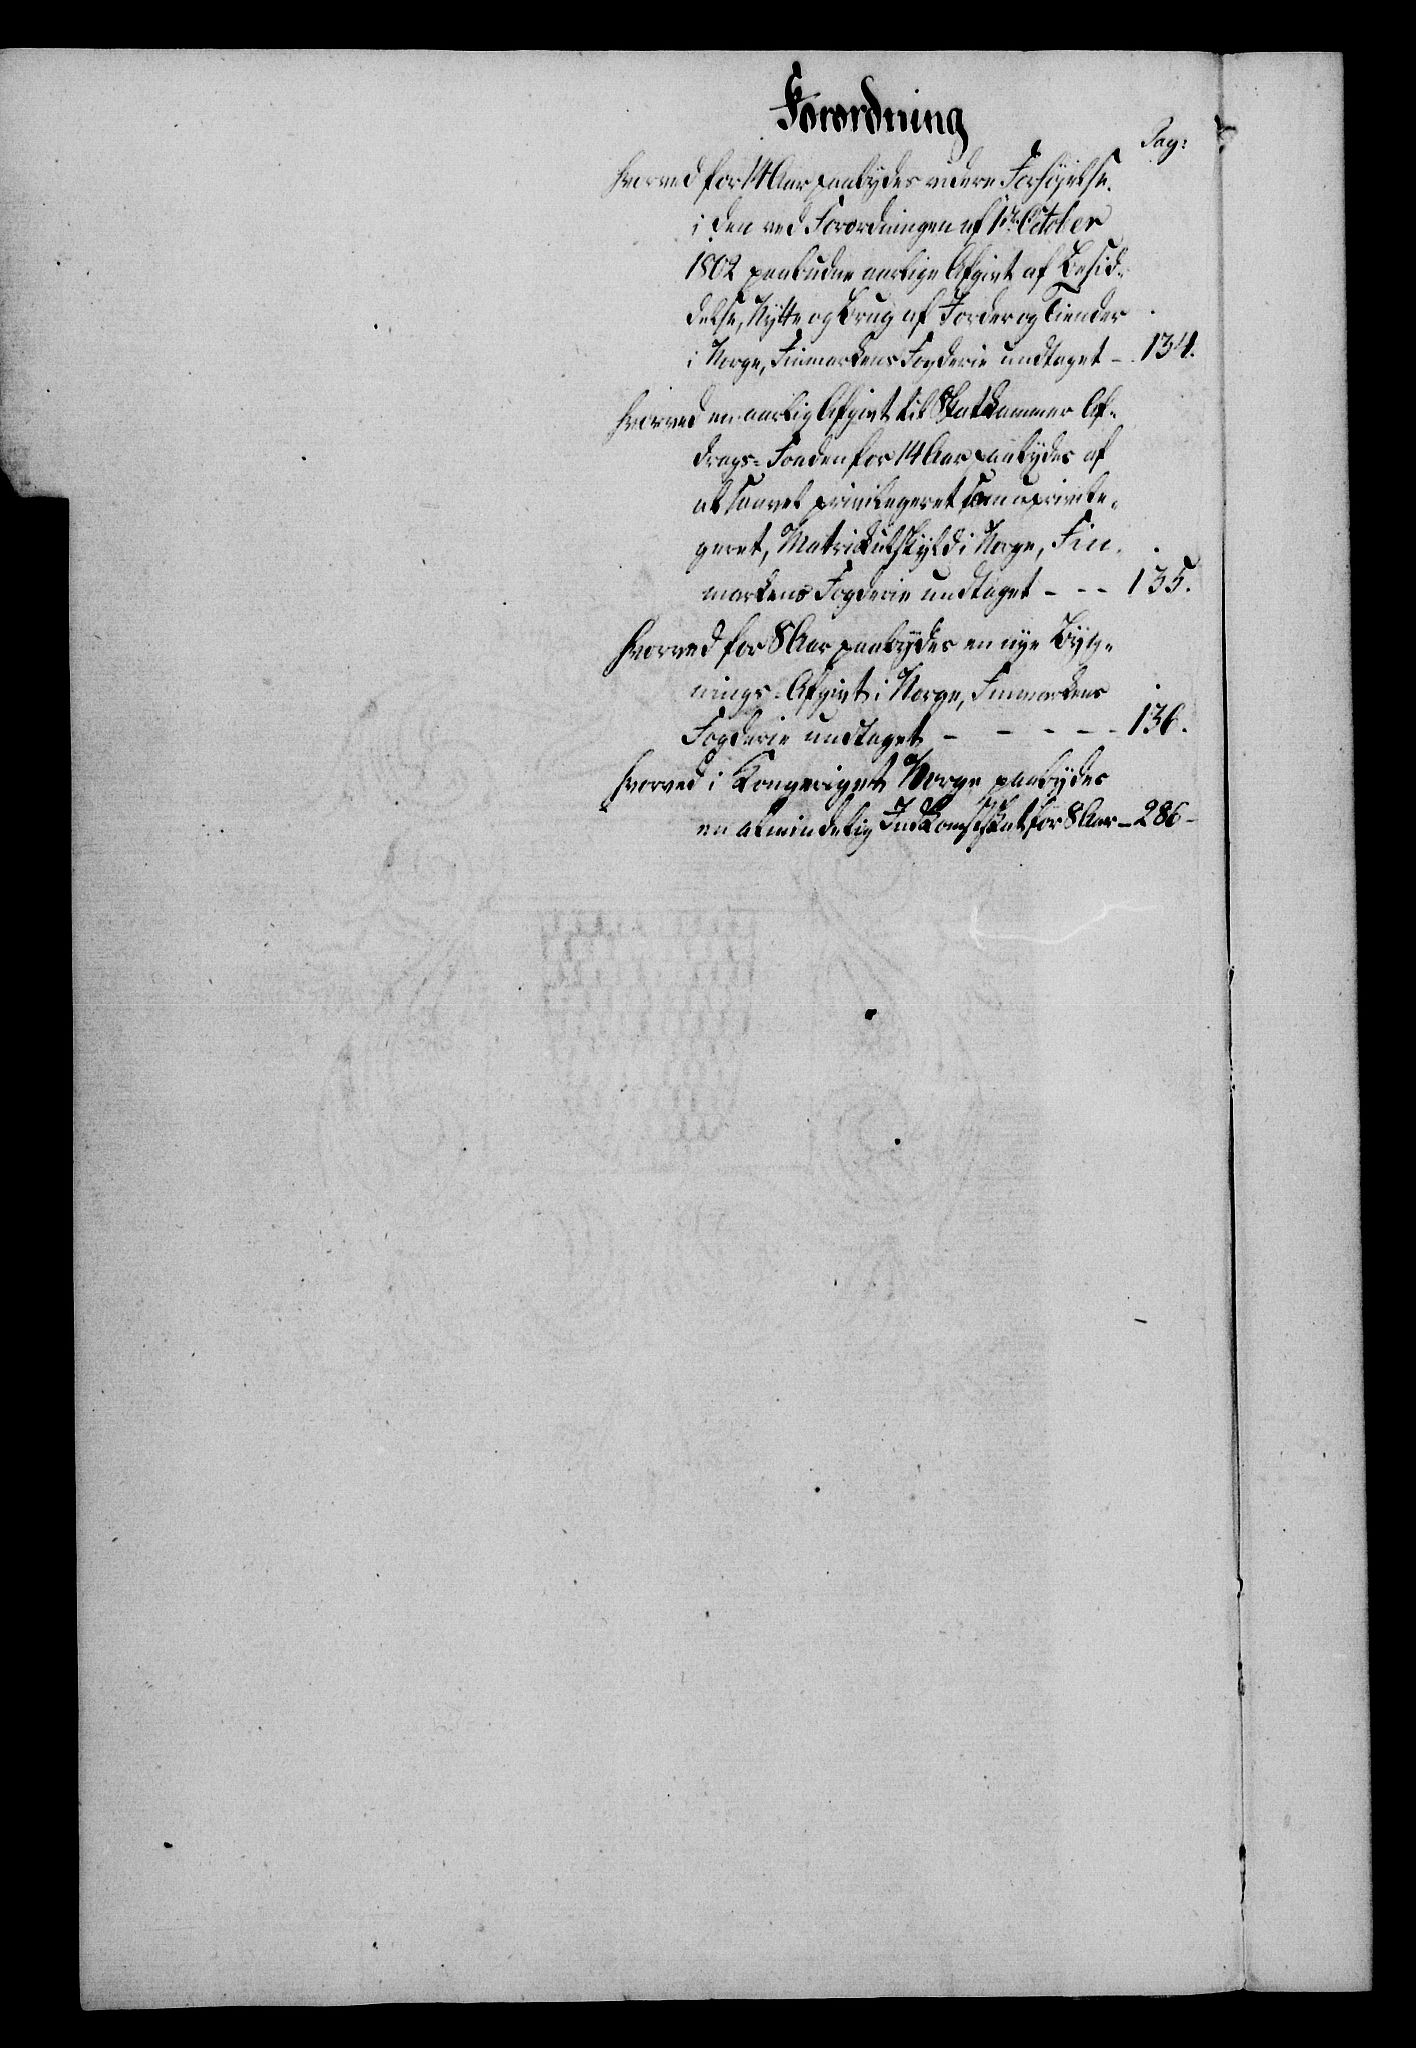 Forordning
Pag:
hvorved for 14 Aar paabydes videre Forhöyelse
i den ved Forordningen af 1ste October
1802 paabudne aarlige Afgivt af Besid-
delse, Nytte og Brug af Jorder og Tiender
i Norge, Finmarkens Fogderie undtaget - 134.
hvorved en aarlig Afgivt til Skatkammer Af-
drags-Fonden for 14 Aar paabydes af
al saavel privilegeret som uprivile-
geret, Matrickulskyld i Norge, Fin-
markens Fogderie undtaget - - - 135.
hvorved for 8 Aar paabydes en nye Byg-
nings-Afgivt i Norge, Finmarkens
Fogderie undtaget - - - - - 136.
hvorved i Kongeriget Norge paabydes
en almindelig Indkomstskat for 8 Aar - 286 -